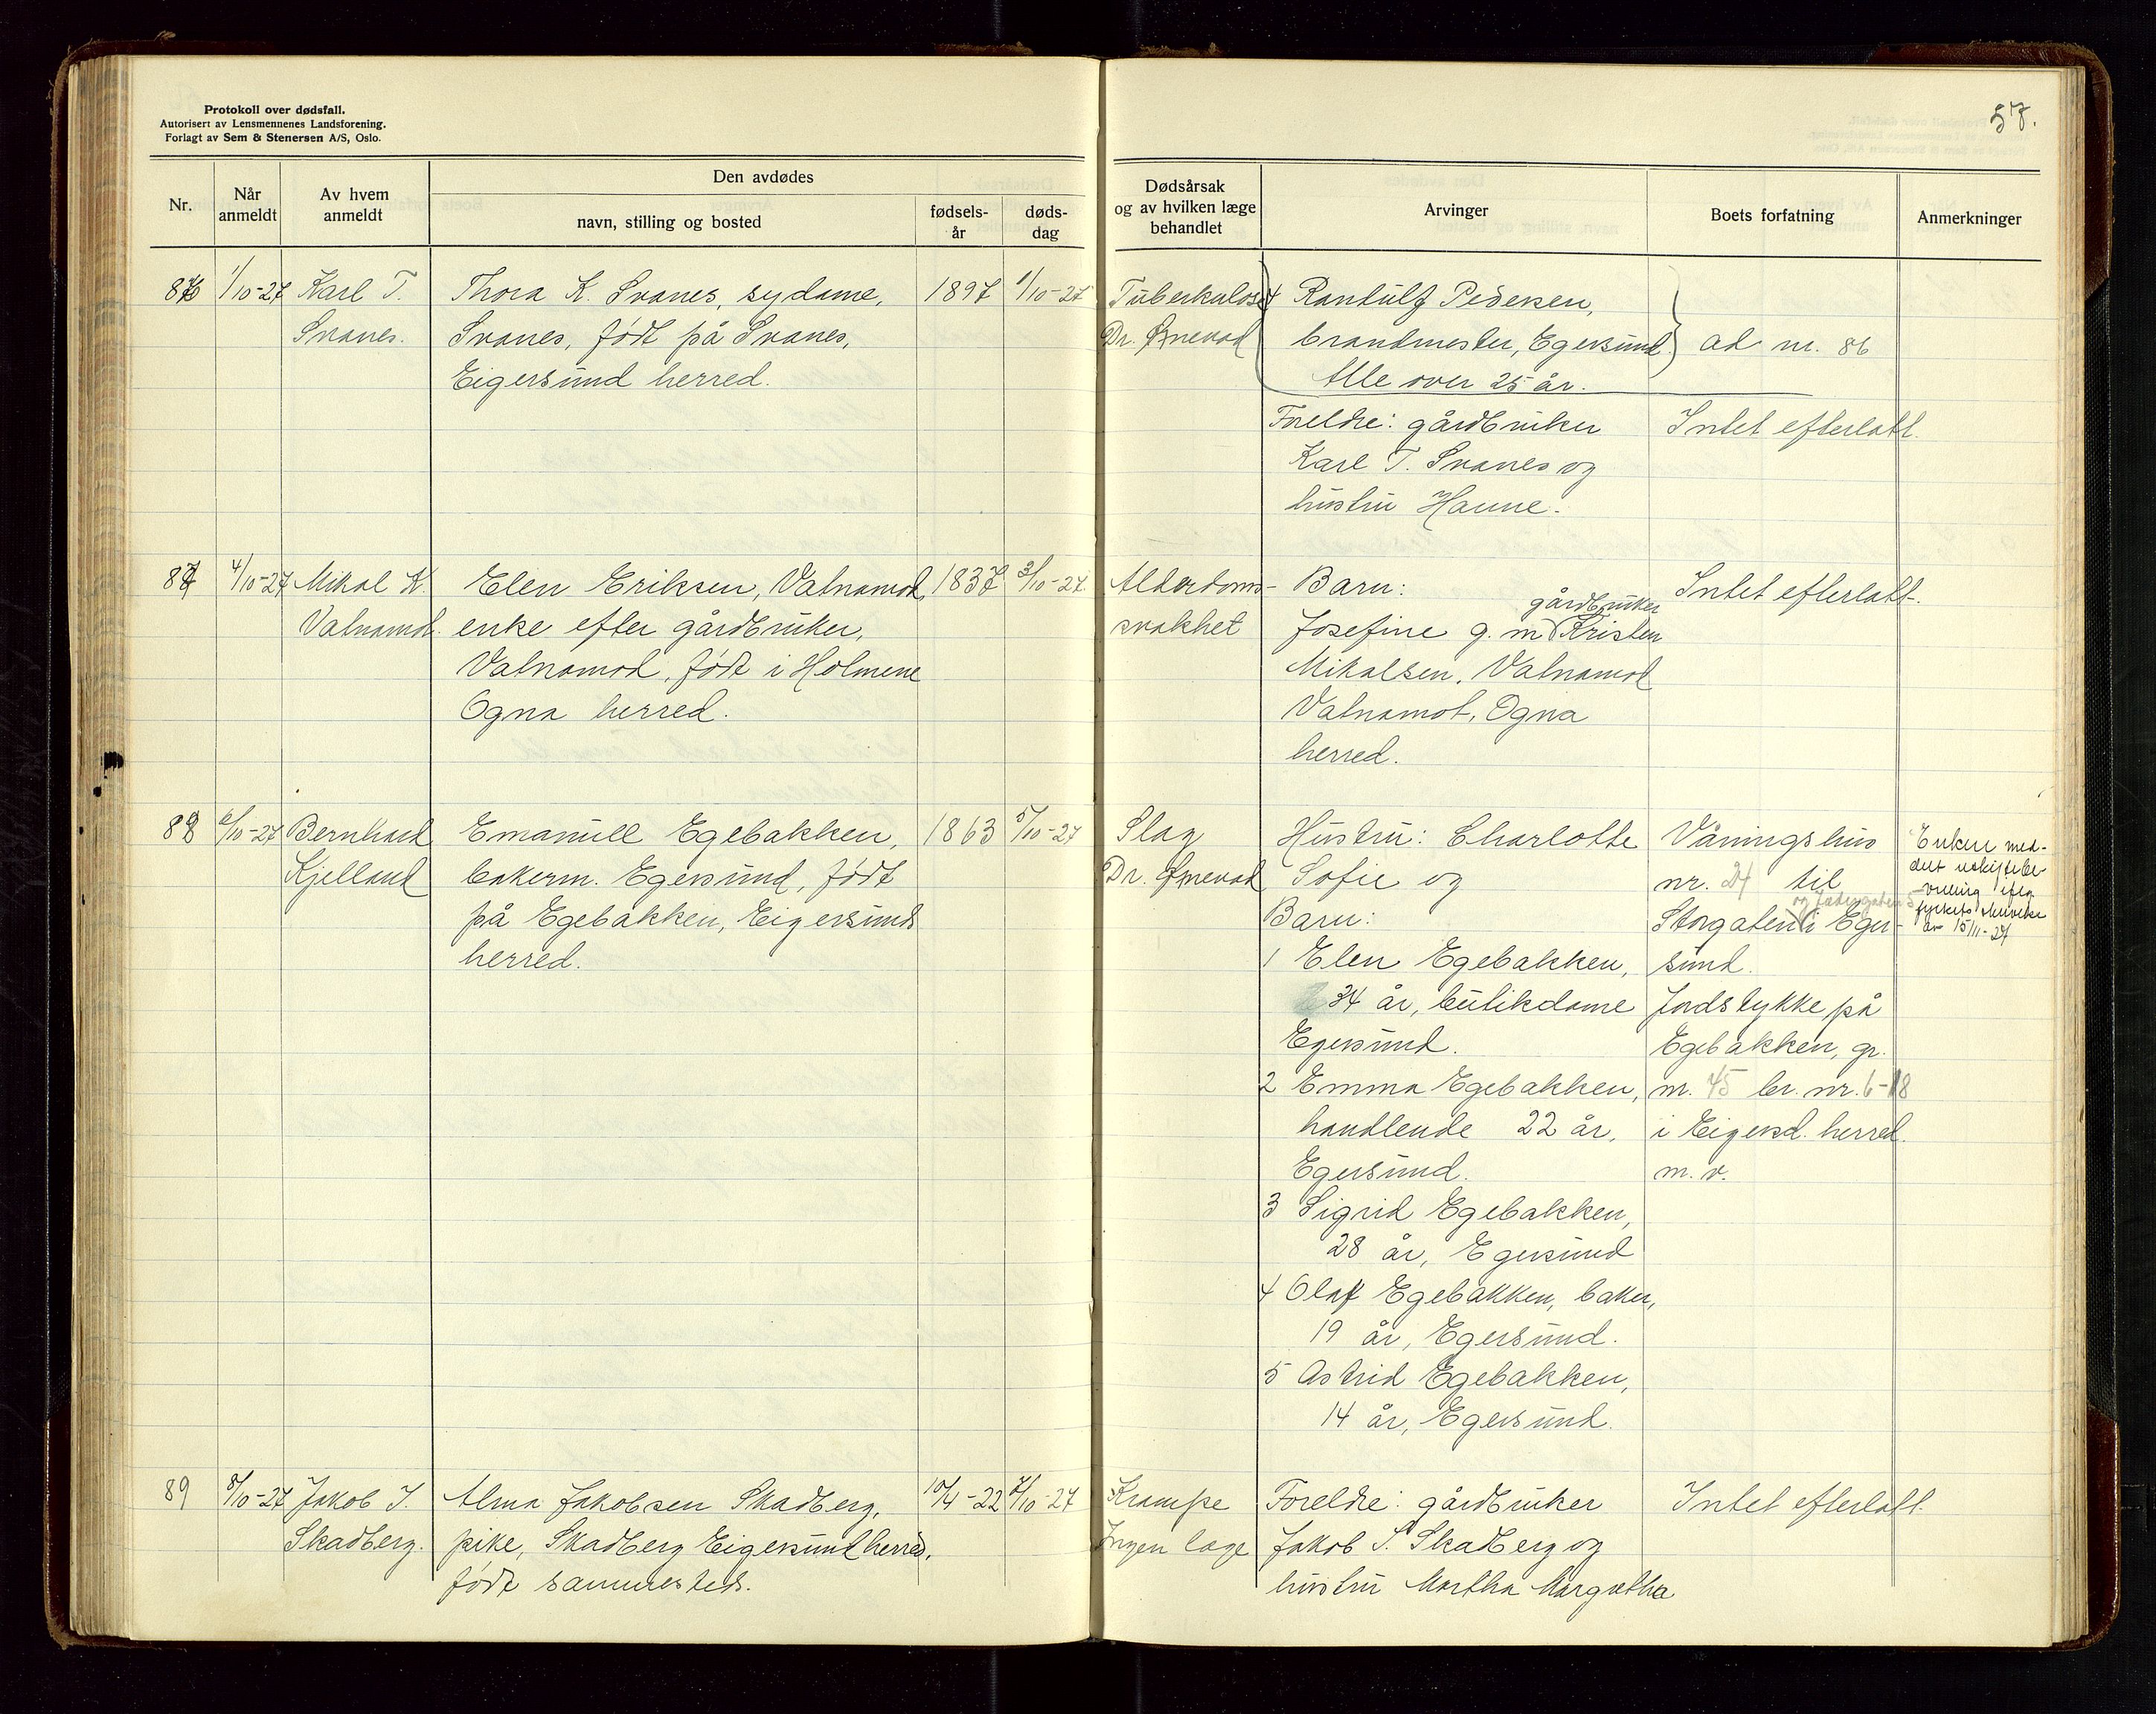 Protokoll over dødsfall.
Autorisert av Lensmennenes Landsforening.
Forlagt av Sem & Stenersen A/S, Oslo.
57.
Nr.
Når anmeldt
Av hvem anmeldt
Den avdødes
navn, stilling og bosted
fødsels-år
døds-dag
Dødsårsak og av hvilken læge behandlet
Arvinger
Boets forfatning
Anmerkninger
1/10-27
Karl T.
Svanes.
Thora K. Svanes, sydame,
Svanes, født på Svanes,
Eigersund herred.
1897
1/10-27
Tuberkulose
Dr. Ørnevad
4 Rantulf Pedersen,
brandmester, Egersund.
Alle over 25 år.
ad nr. 86
Foreldre: gårdbruker
Karl T. Svanes og
hustru Hanne.
Intet efterlatt.
87
4/10-27
Mikal K.
Vatnamot.
Elen Eriksen, Vatnamot,
enke efter gårdbruker,
Vatnamot, født i Holmene
Ogna herred.
1837
3/10-27.
Alderdoms-
svakhet
Barn:
gårdbruker
Josefine g. m. Kristen
Mikalsen, Vatnamot
Vatnamot, Ogna
herred.
Intet efterlatt.
88
6/10-27
Bernhard
Kjelland
Emanuell Egebakken,
bakerm. Egersund, født
på Egebakken, Eigersunds
herred.
1863
5/10-27
Slag
Dr. Ørnevad
Hustru: Charlotte
Sofie og
Barn:
1 Elen Egebakken,
34 år, butikdame
Egersund.
2 Emma Egebakken,
handlende 22 år,
Egersund.
3 Sigrid Egebakken,
28 år, Egersund
4 Olaf Egebakken, baker,
19 år, Egersund.
5 Astrid Egebakken,
14 år, Egersund.
Våningshus
nr. 24 til
Storgaten i Eger-
sund.
Jordstykke på
Egebakken, gr.
nr. 45 br. nr. 6-18
i Eigersd. herred.
m. v.
Enken med-
delt uskiftebe-
villing iflg
fylkets skrivelse
av 15/11-27
89
8/10-27
Jakob S.
Skadberg.
Alma Jakobsen Skadberg,
pike, Skadberg Eigersund herred,
født sammesteds.
10/4-22
7/10-27
Krampe
Ingen læge
Foreldre: gårdbruker
Jakob S. Skadberg og
hustru Martha Margretha
Intet efterlatt.